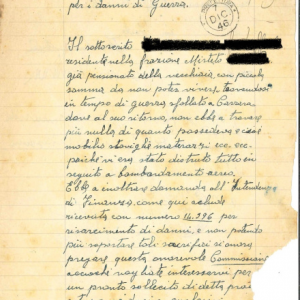 per i danni di Guerra.
DIC
46
Il sottoscritto
residente nella frazione Mirteto
già pensionato della vecchiaia con piccola
somma da non poter vivere trovandosi
in tempo di guerra sfollato a Carrara
dove al suo ritorno, non ebbe a trovare
più nulla di quanto possedeva e cioè
mobilio stoviglie materassi ecc. ecc.
poiché vi era stato distrutto tutto in
seguito a bombardamento aereo.
Ebbe a inoltrare domanda all'Intendenza
di Finanza, come qui acclude
ricevuta con numero 14.296 per
risarcimento di danni, e non potendo
più sopportare tali sacrifici si onora
pregare questa onorevole Commissione
acciocché voglia interessarsi per
un pronto sollecito di detta